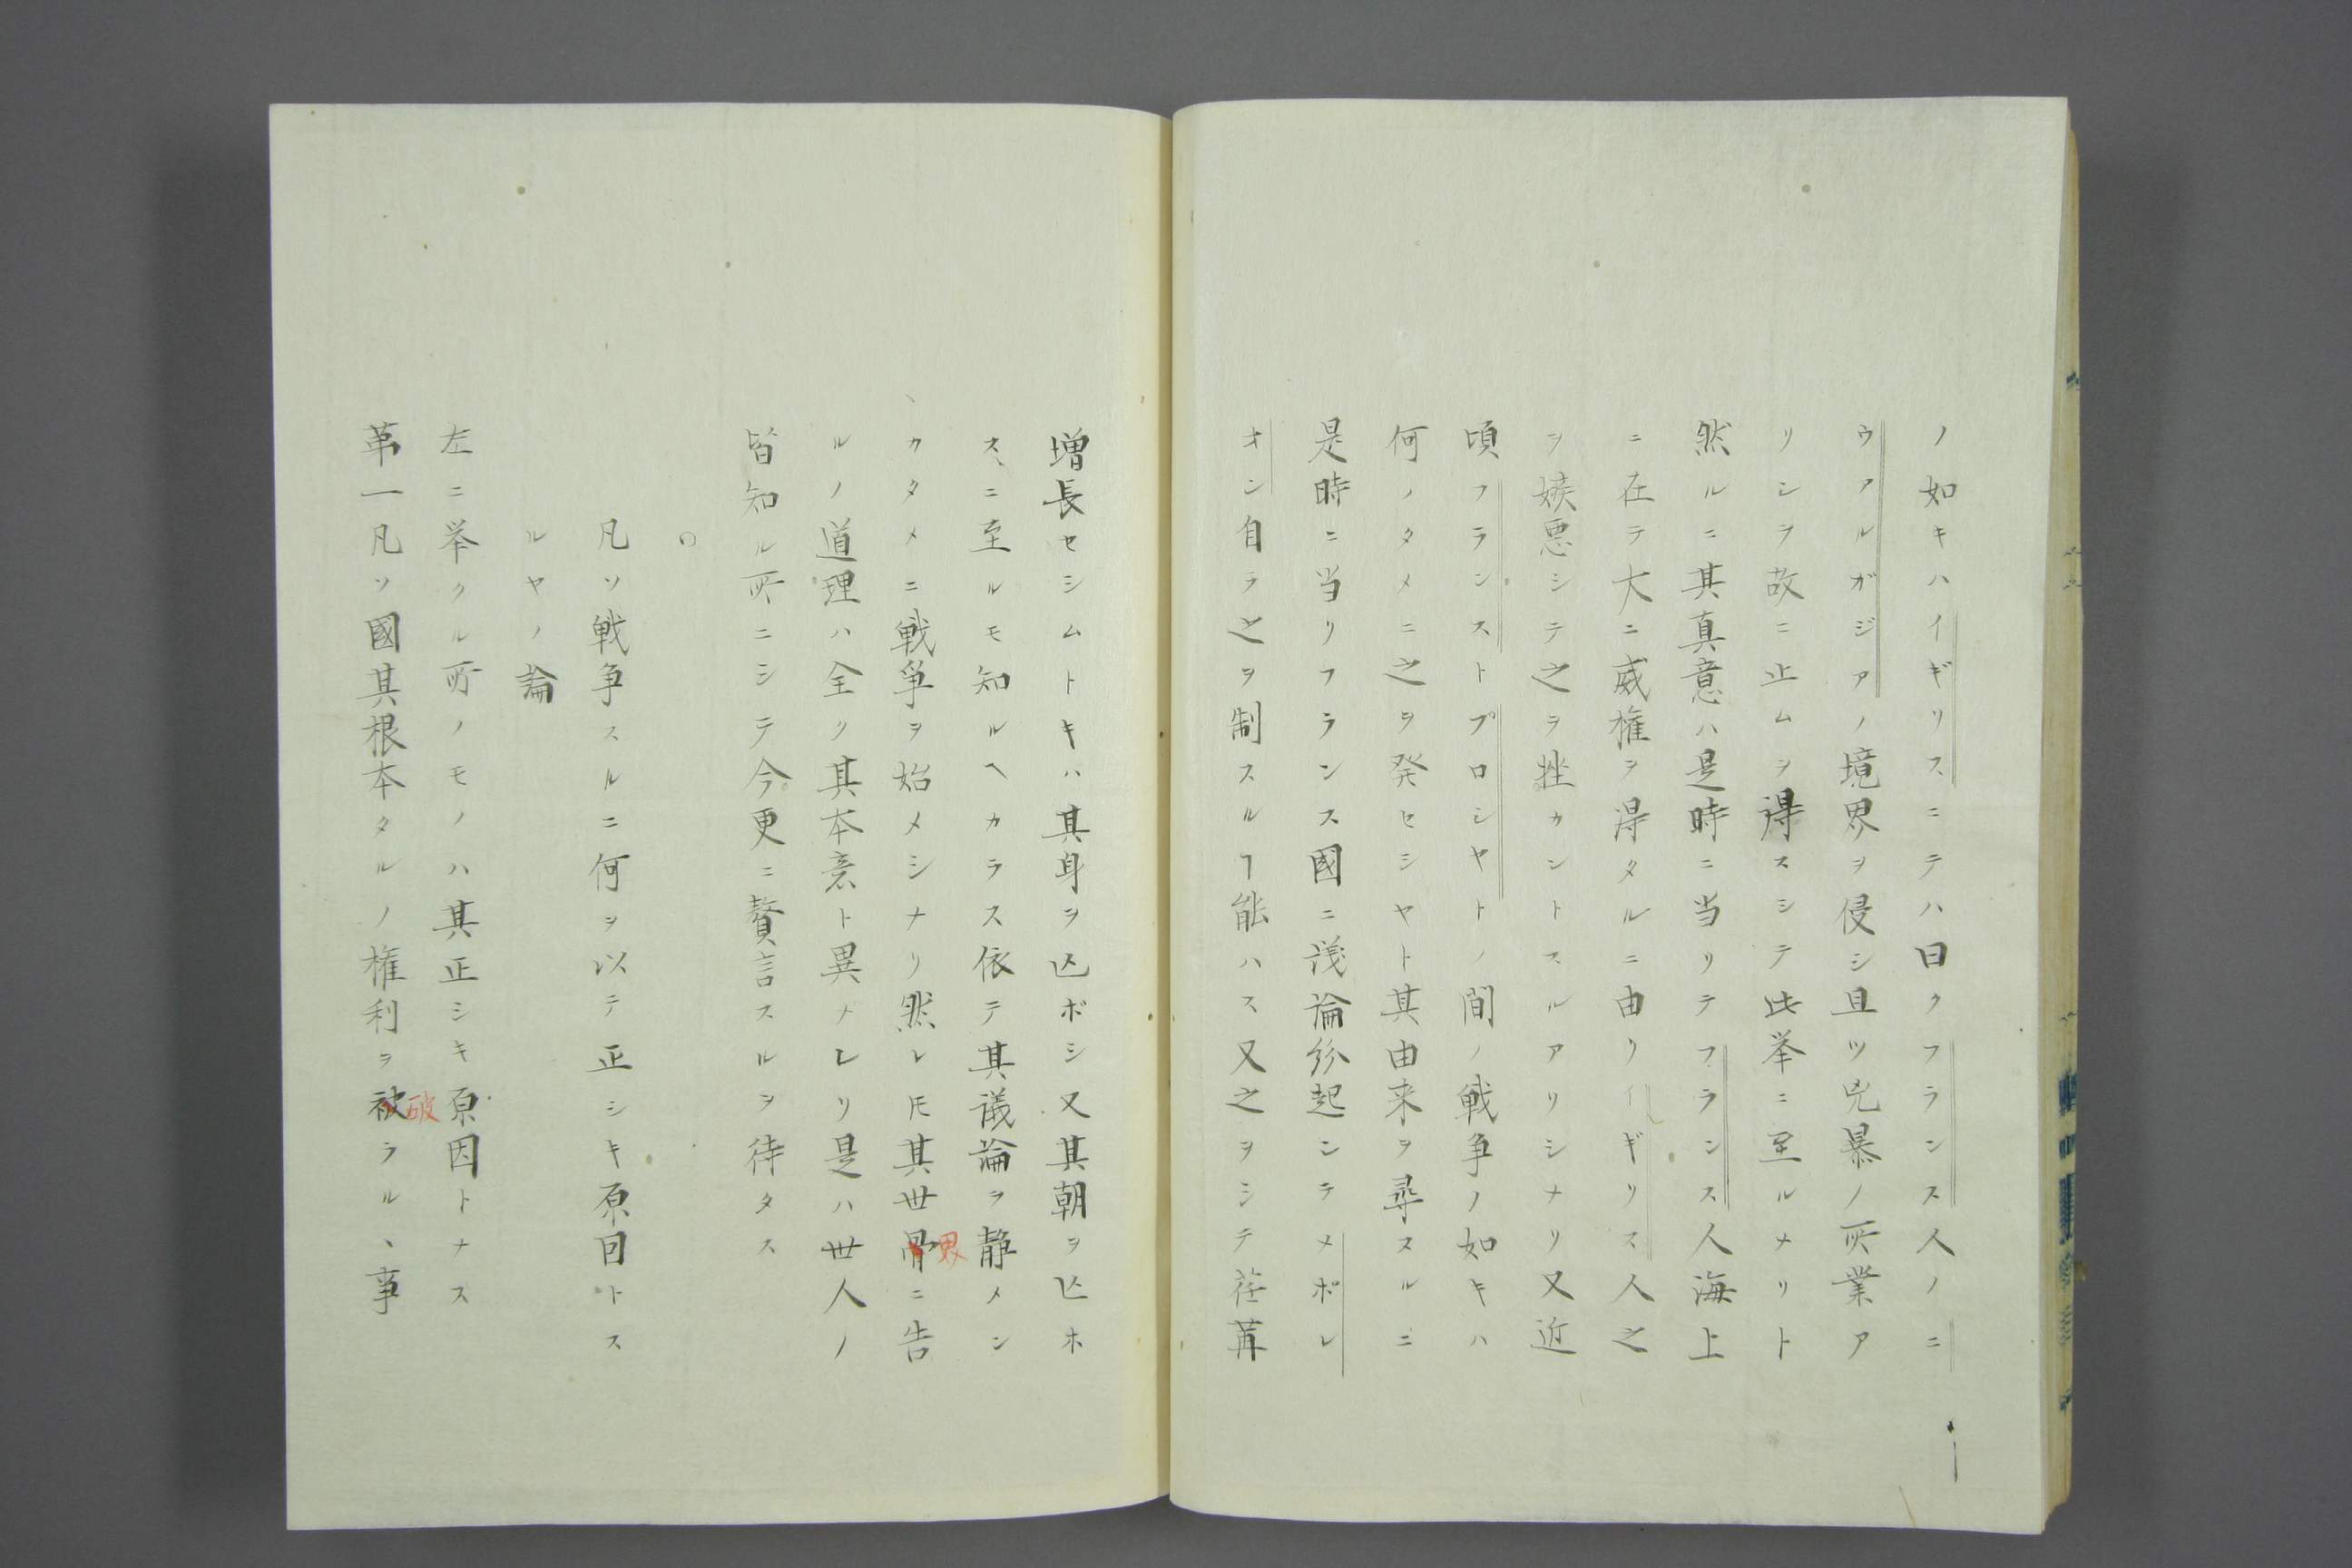 ノ如キハイギリスニテハ曰クフランス人ノニ
ウアルガジアノ境界ヲ侵シ且ツ兇暴ノ所業ア
リシヲ故ニ止ムヲ得スシテ此挙ニ至ルナリト
然ルニ其真意ハ是時ニ当リテフランス人海上
ニ在テ大ニ威権ヲ得タルニ由リイギリス人之
ヲ嫉悪シテ之ヲ挫カントスルアリシナリ又近
頃フランストプロシヤトノ間ノ戦争ノ如キハ
何ノタメニ之ヲ発セシヤト其由来ヲ尋スルニ
是時ニ当リフランス國ニ議論紛起シテナポレ
オン自ラ之ヲ制スルヿ能ハス又之ヲシテ荏苒
増長セシムトキハ其身ヲ亾ボシ又其朝ヲ亾ホ
スニ至ルモ知ルヘカラス依テ其議論ヲ静メン
カタメニ戦争ヲ始メシナリ然レ𪜈其世骨界ニ告
ルノ道理ハ全ク其本意ト異ナレリ是ハ世人ノ
皆知ル所ニシテ今更ニ贅言スルヲ待タス
○
凡ソ戦争スルニ何ヲ以テ正シキ原因トス
ルヤノ論
左ニ挙クル所ノモノハ其正シキ原因トナス
第一凡ソ國其根本タルノ権利ヲ被破ラル、事